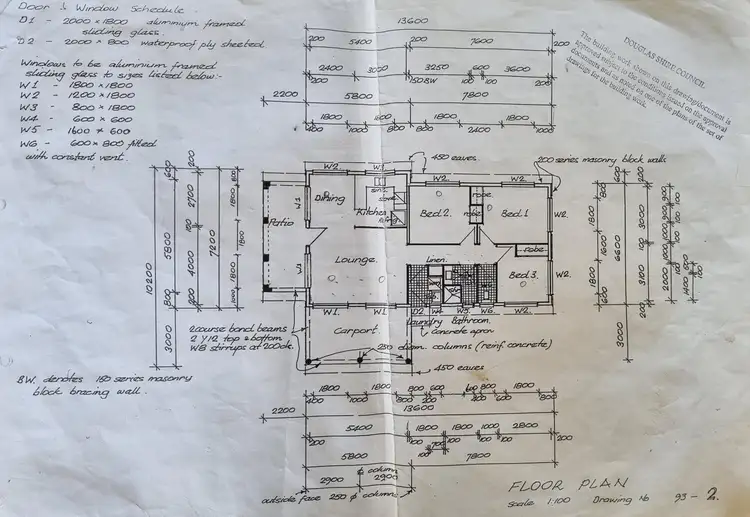 Door & Window Schedule.
D1 - 2000 × 1800 aluminium framed
sliding glass.
D2 - 2000 × 800 waterproof ply sheeted.
Windows to be aluminium framed
sliding glass to sizes listed below:-
W1 - 1800 × 1800
W2 - 1200 × 1800
W3 - 800 × 1800
W4 - 600 × 600
W5 - 1600 × 600
W6 - 600 × 800 fitted
with constant vent.
DOUGLAS SHIRE COUNCIL
The building work shown on this drawing/document is
approved subject to the conditions listed on the approval
document and is noted on one of the plans of the set of
drawings for the building work.
13600
200 5400 7600 200
2400 3000 3250 600 3600
200 150BW 100 100 200
2200 5800 7800
1800 1800 800 1800 2400 1800
400 1000 800 1000
450 eaves.
200 series masonry block walls
W2 W1 W2 W2
Dining
Kitchen
Bed 2.
robe
robe
Bed 1
W2.
Patio
W1
Lounge
linen
robe
Bed 3
W2.
W1. W1. D2 W4 W5. W6. W2.
Laundry Bathroom
concrete apron
Carport
2 course bond beams
2 Y12 top & bottom
W8 stirrups at 200crs.
250 diam. columns (reinf. concrete)
450 eaves
BW. denotes 150 series masonry
block bracing wall.
10200
5800
3000
600
800
2700
100
4000
7200
1800
1800
1000
1800
1800
600
6600
3000
200
600
3000
100
3200
200
800
1800 1800 800 600 600 800 1800
400 1000 800 200 400 600 1000
2200 13600
5400 1800 1800 1000 2800
200 100 700 100 100 200
5800 7800
¢ column
2900 2900
outside face 250 ø columns
FLOOR PLAN
Scale 1:100 Drawing No 93 - 2.